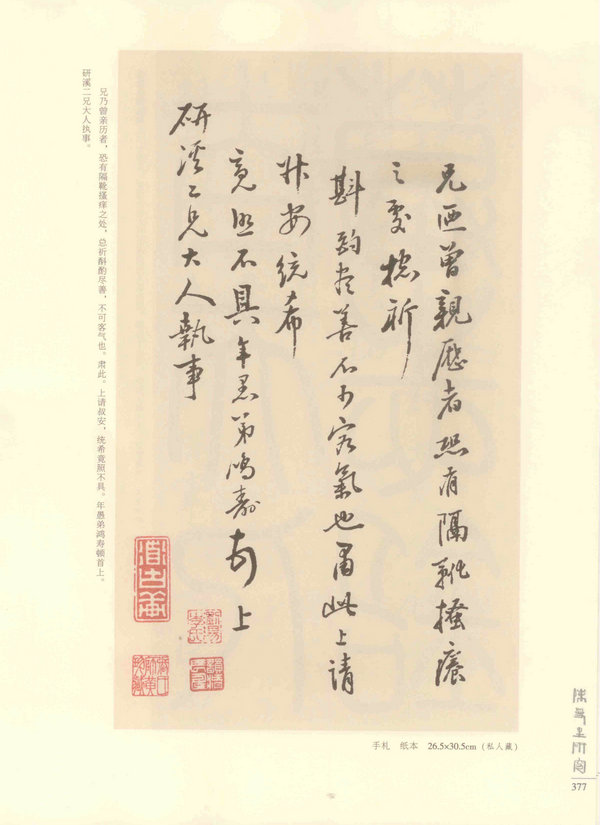 兄迺曾親歷者恐有隔靴搔癢
之處摠祈
斟酌盡善不可客氣也肅此上請
升安統希
亮照不具年愚弟鴻壽頓首上
研溪二兄大人執事
兄乃曾亲历者，恐有隔靴搔痒之处，总祈斟酌尽善，不可客气也。肃此。上请叔安，统希竟照不具。年愚弟鸿寿顿首上。
研溪二兄大人执事。
手札 纸本 26.5×30.5cm (私人藏)
陳曼生研究
377